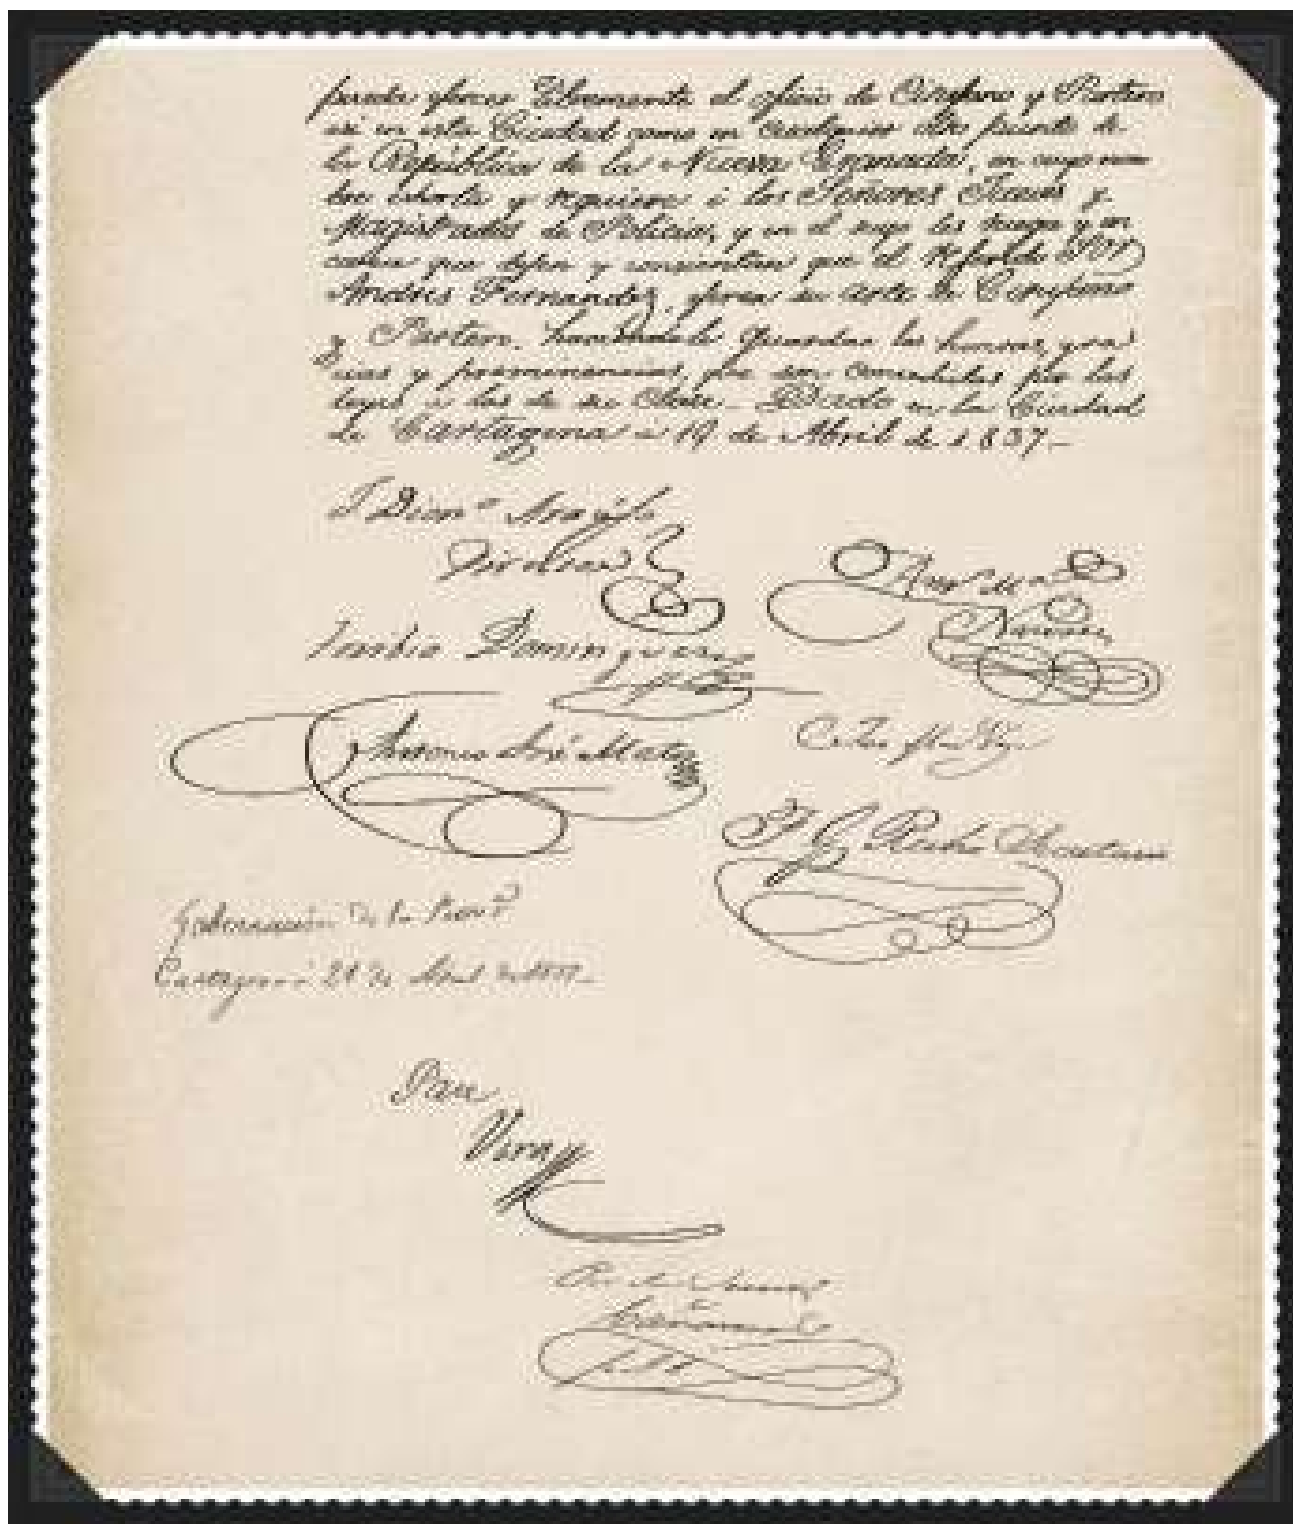 pueda ejercer libremente el oficio de Cirujano y Partero
asi en esta Ciudad como en cualquier otro punto de
la República de la Nueva Granada, en cuyo nom
bre exhorta y requiere á los Señores Jueces y
Magistrados de Policia, y en el suyo les ruega y en
carga que dejen y consientan que el referido Sor
Andres Fernandez, ejerza su arte de Cirujano
y Partero, haciendole guardar los honores, gra
cias y preeminencias, que son concedidas por las
leyes a los de su clase. Dado en la Ciudad
de Cartagena á 19 de Abril de 1837-
J. Dion.º Araújo
Dominguez
Antonio José Mata
Secretario
Gobernación de la Prov.ª
Cartagena á de Abril de
Vera